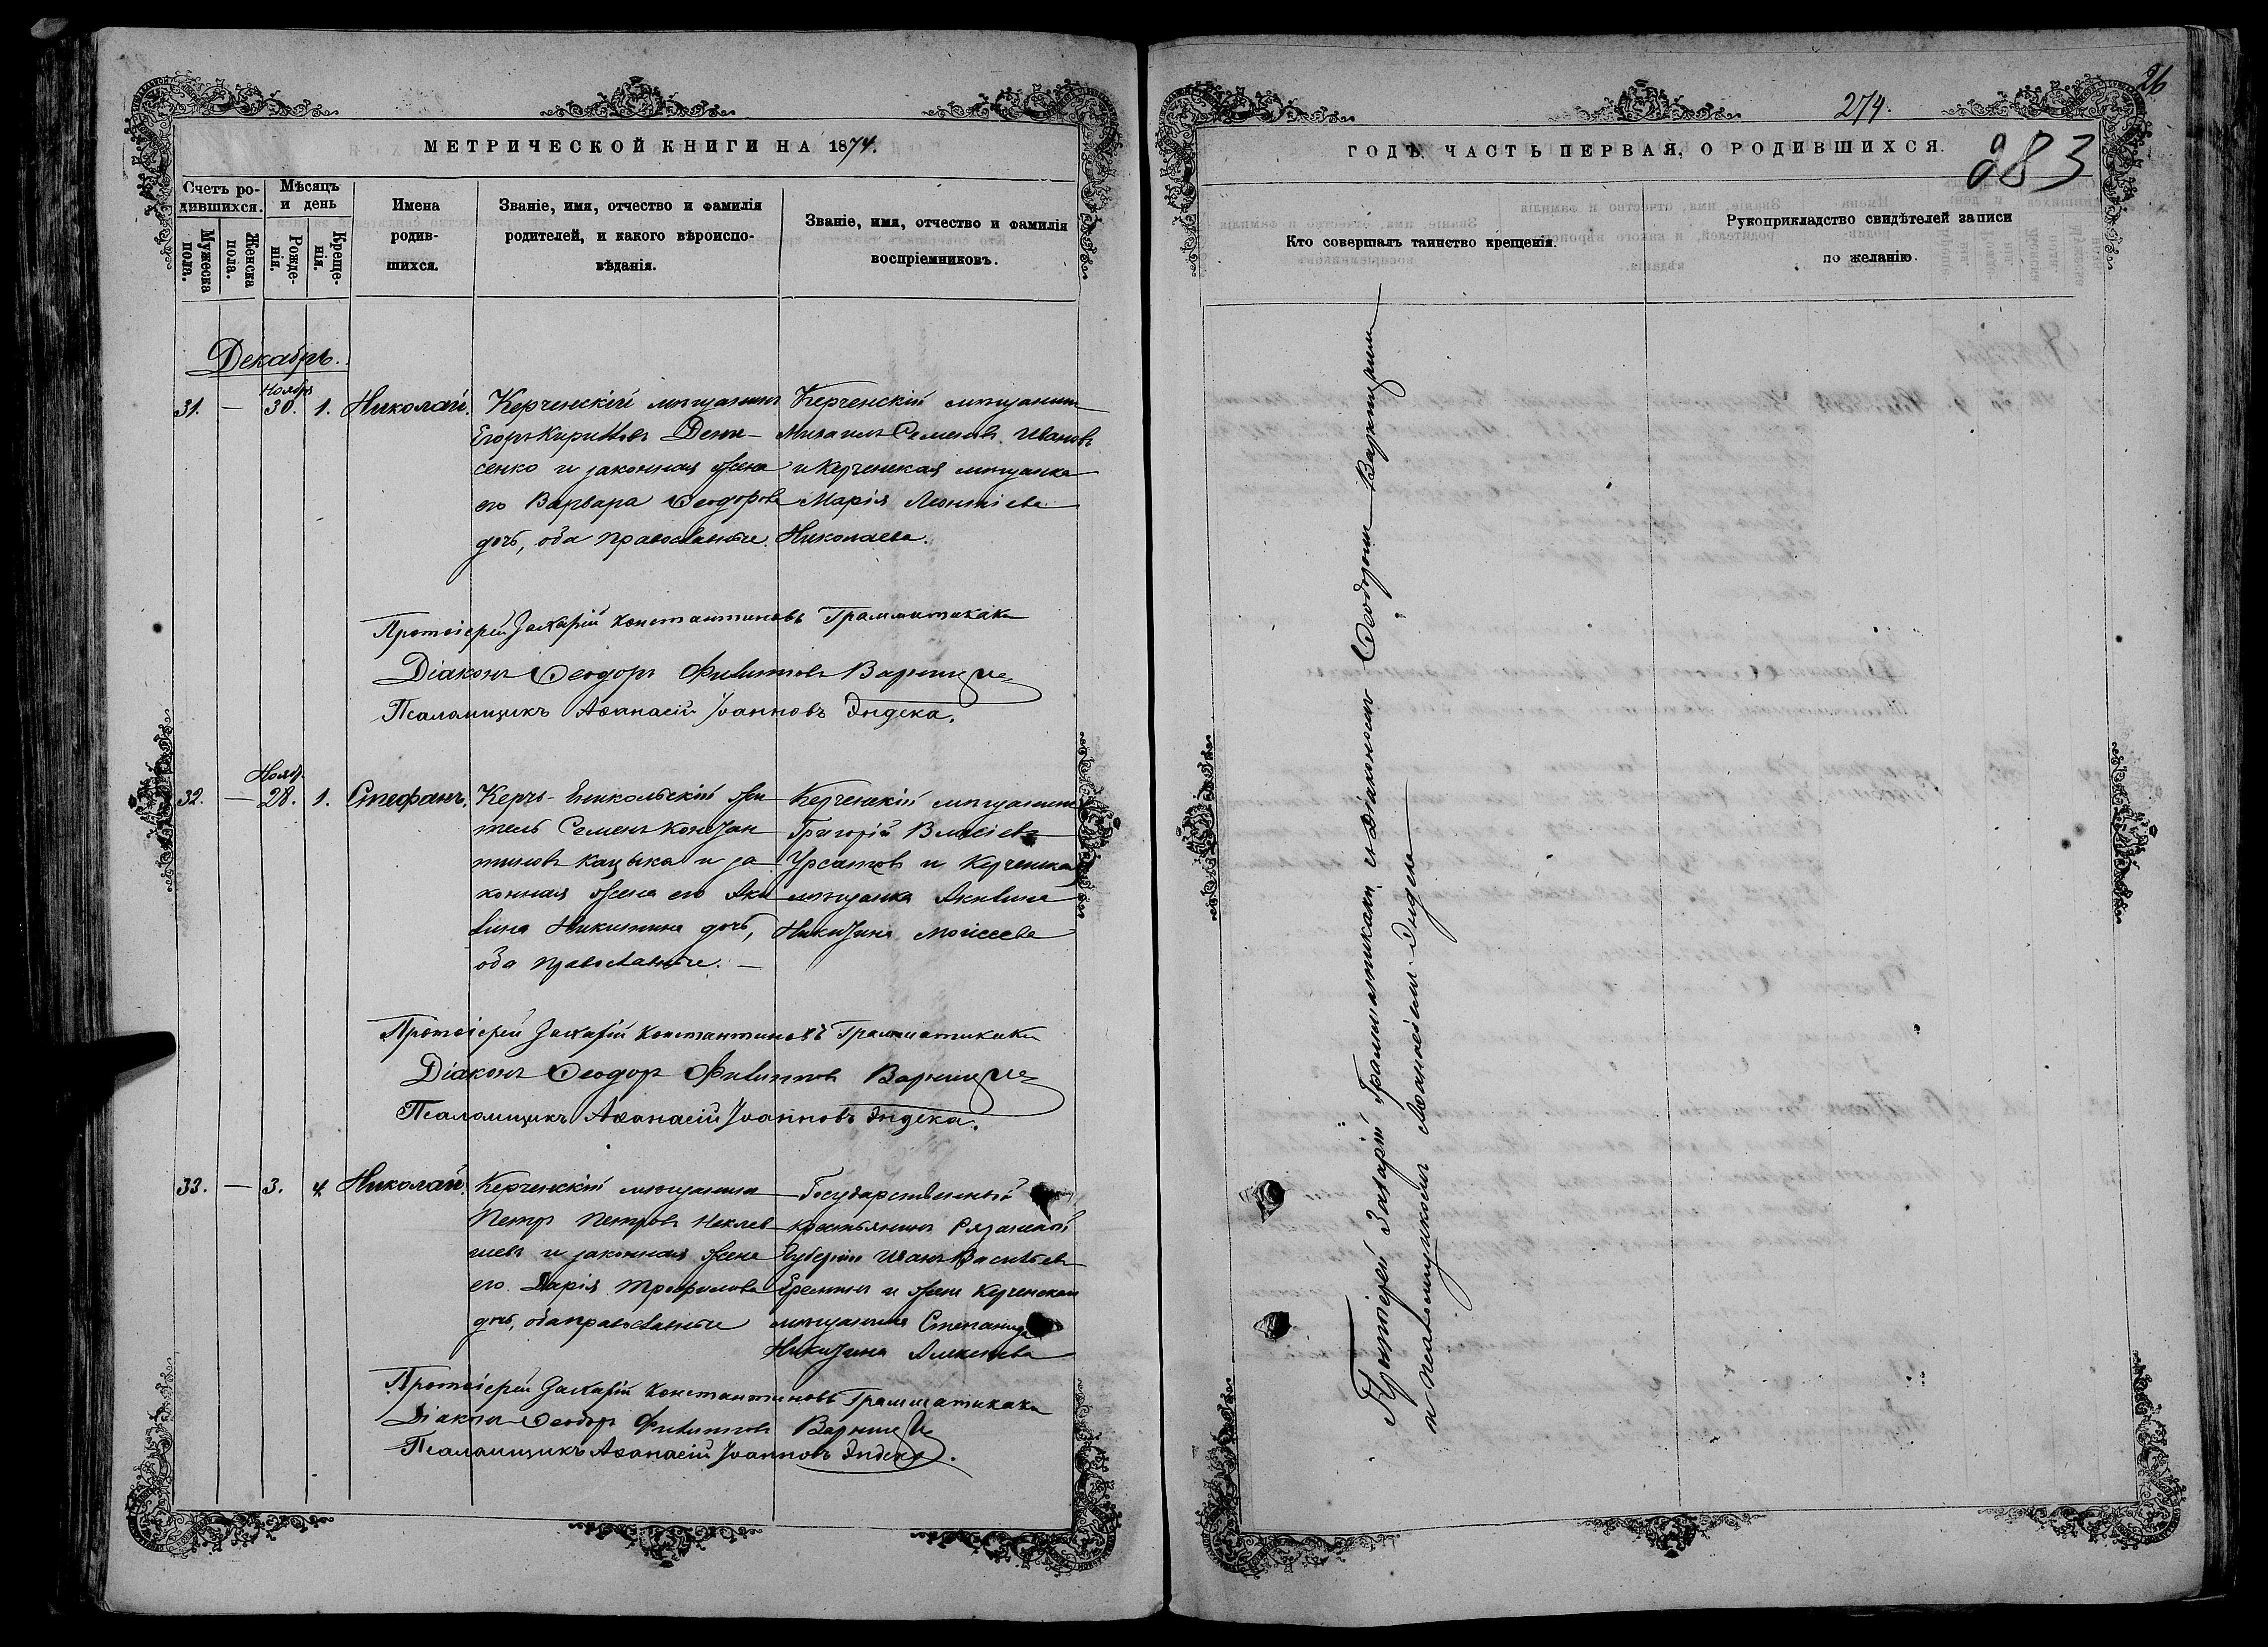 МЕТРИЧЕСКОЙ КНИГИ НА 1874.
Счетъ ро-
дившихся.
Мужеска
пола.
Женска
пола.
Мѣсяцъ
и день
Рожде-
нія.
Креще-
нія.
Имена
родив-
шихся.
Званіе, имя, отчество и фамилія
родителей, и какого вѣроиспо-
вѣданія.
Званіе, имя, отчество и фамилія
воспріемниковъ.
Декабрь.
31. — Ноября 30. 1. Николай.
Керченскій мѣщанинъ
Егоръ Кирилловъ Дени-
сенко и законная жена
его Варвара Ѳеодорова
дочь, оба православные.
Керченскій мѣщанинъ
Михаилъ Семеновъ Ивановъ
и Керченская мѣщанка
Марія Леонтіева
Николаева.
Протоіерей Захарій Константиновъ Грамматикаки
Діаконъ Ѳеодоръ Филипповъ
Псаломщикъ Аѳанасій Іоанновъ Эндека.
32. — Нояб. 28. 1. Стефанъ.
Керчь-Еникольскій жи
тель Семенъ Констан
тиновъ Кацыка и за
конная жена его Аки
лина Никитина дочь,
оба православные. —
Керченскій мѣщанинъ
Григорій Власіевъ
и Керченская
мѣщанка Акилина
Никитина Моісеева
Протоіерей Захарій Константиновъ Грамматикаки
Діаконъ Ѳеодоръ Филипповъ
Псаломщикъ Аѳанасій Іоанновъ Эндека.
33. — 3. 4. Николай.
Керченскій мѣщанинъ
Петръ Петровъ
и законная жена
его Дарія Трофимова
дочь, оба православные
Государственный
крестьянинъ Рязанской
Губерніи Иванъ Васильевъ
Ереминъ и жена Керченскаго
мѣщанина Степанида
Никитина Алексѣева
Протоіерей Захарій Константиновъ Грамматикаки
Діаконъ Ѳеодоръ Филипповъ
Псаломщикъ Аѳанасій Іоанновъ Эндека.
26
274.
283
ГОДЪ. ЧАСТЬ ПЕРВАЯ, О РОДИВШИХСЯ.
Кто совершалъ таинство крещенія.
Рукоприкладство свидѣтелей записи
по желанію.
Протоіерей Захарій Грамматикаки съ Діакономъ Ѳеодоромъ
и псаломщикомъ Аѳанасіемъ Эндека